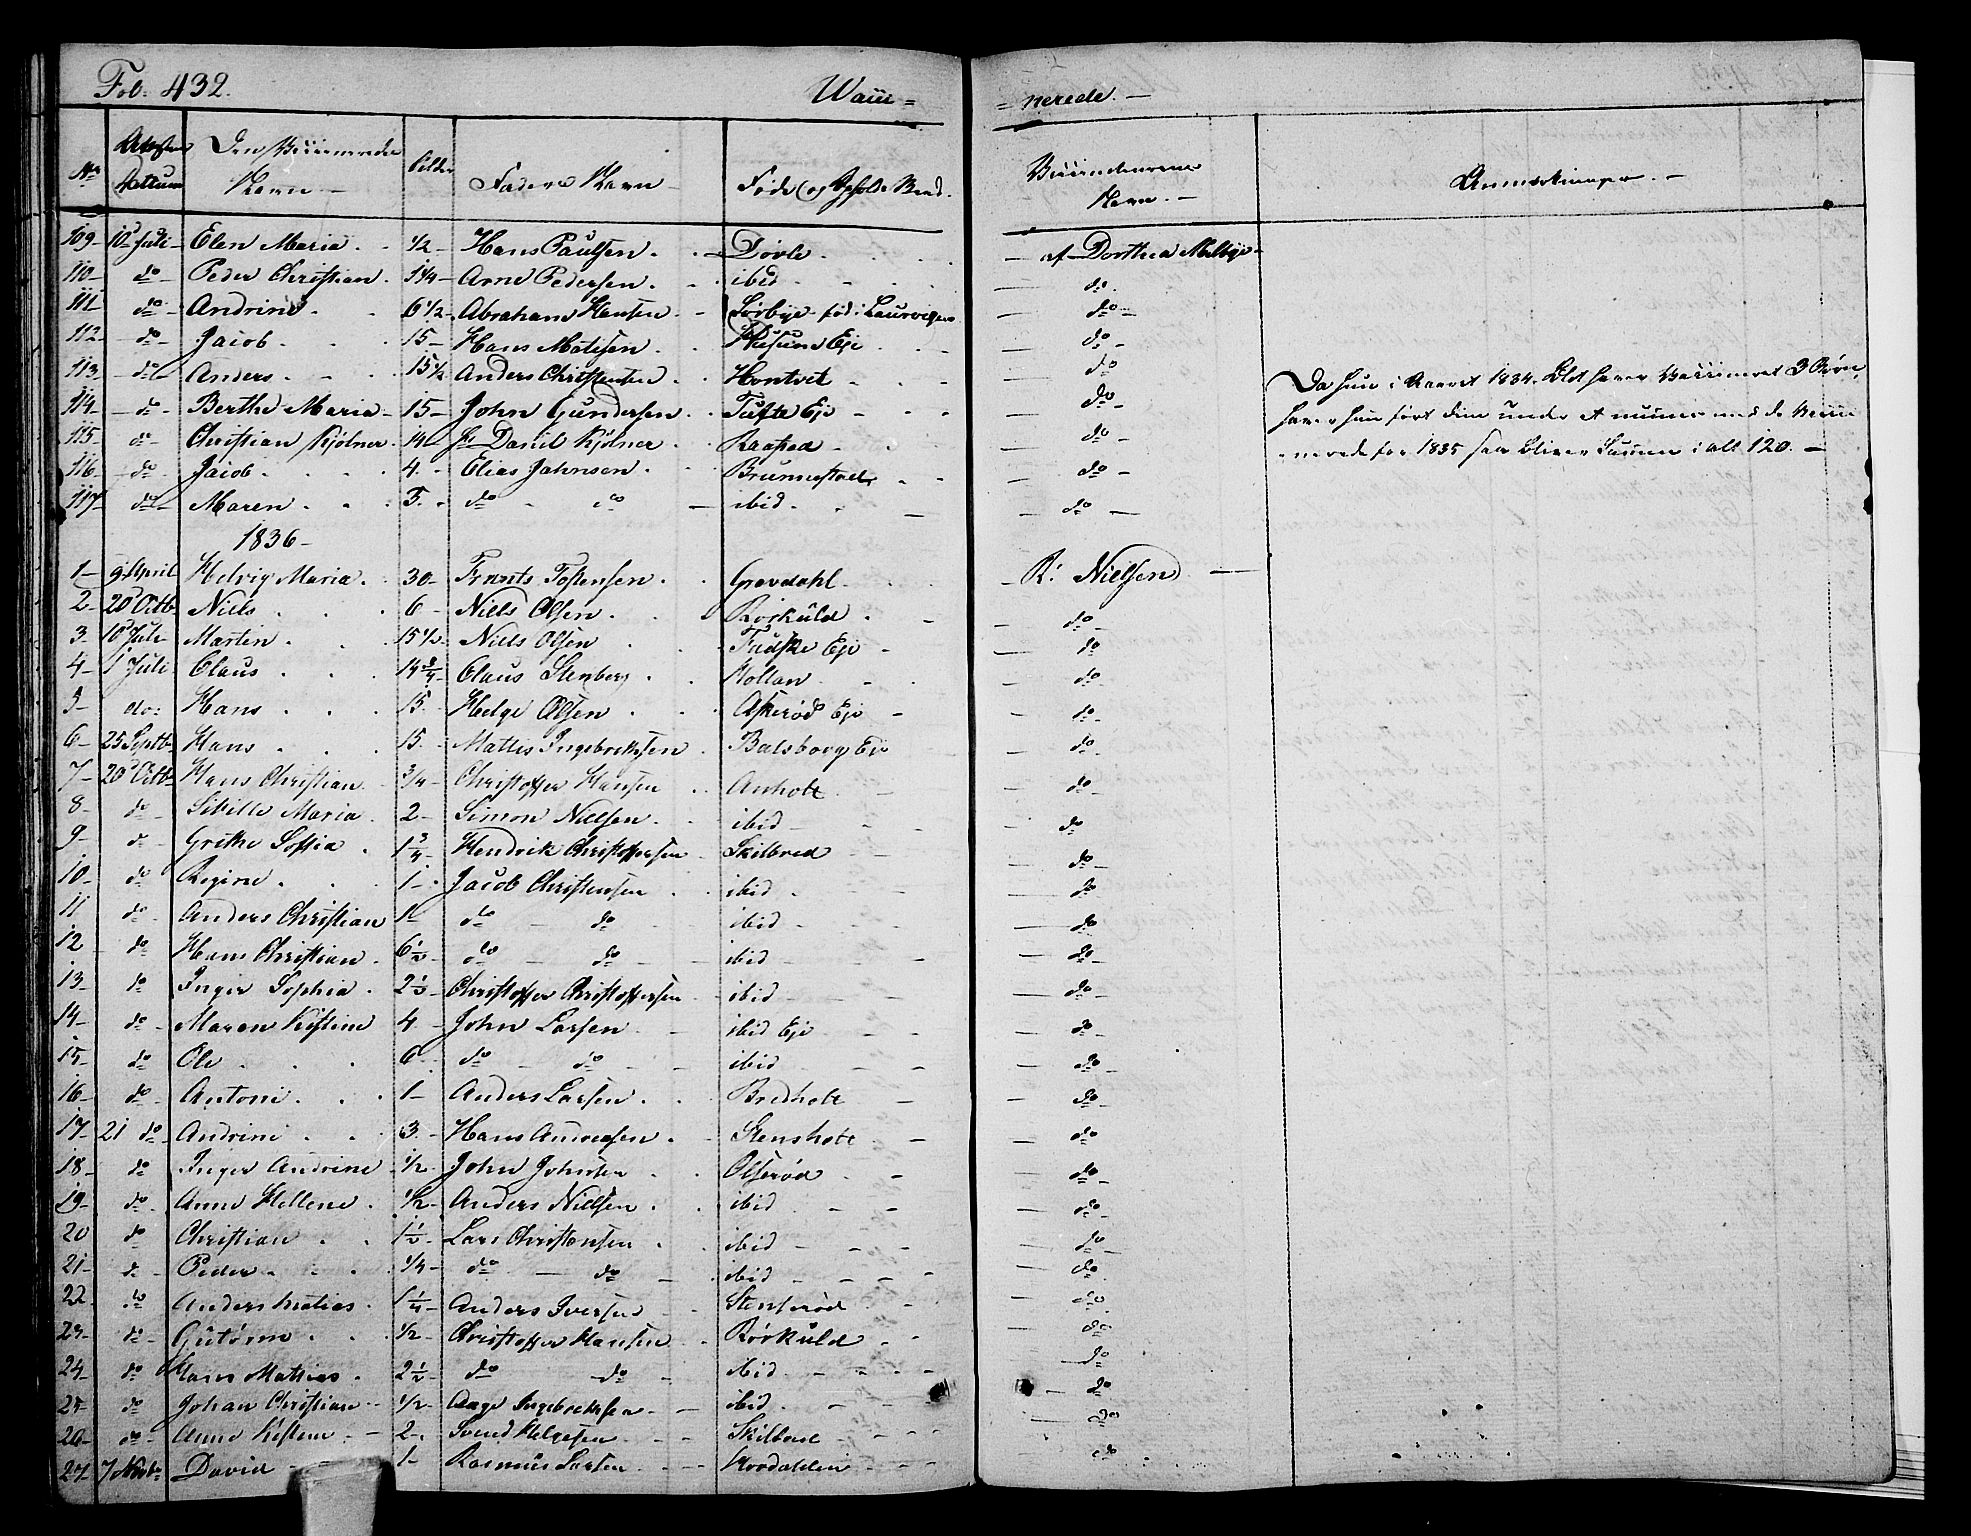 Fol: 432.
Waii= =nerede. —
No Attest Dattum Den Vaiinerede Navn — Alder Faders Navn — Føde og Opholds Sted. Vaiindeurens Navn. — Anmærkninger. —
109 — 10 Juli — Elen Maria . . 1/2 — Hans Paulsen . . — Dövle . . . — af Dorthea Melbye —
110 — do — Peder Christian . 1 1/4 — Arne Pedersen . — ibid . — do.
111 — do — Andrine . . 6 1/2 — Abraham Hansen — Sörbye född i Laurvigen — do —
112 — do — Jacob . . . 15 — Hans Matisen . . Eje . . — do —
113 — do — Anders . — . 15 1/2 Anders Christensen . . Hontvet . . . — do
114 — do — Berthe Maria — 15 — John Gundersen . . Tufte Eje . . . — do —
115 — do — Christian Kjölner . 14 — Daniel Kjölner . . Raasted . — do —
116 — do — Jacob . . . . 4 . — Elias Jahnsen . . Brunnestad . . — do —
117 — do — Maren . . . 5 . . do — do — ibid . . — — do —
Da hun i Aaret 1834 har vaiineret 3 Børn,
haver hun ført dem under et numer med de Vaiii
=nerede for 1835 saa bliver Summen i alt 120. —
1836 —
1 — 9 April Helvig Maria . . 30 — Frants Tostensen . . Grevdahl . . . — R: Nielsen —
2 — 20 Octb Niels . . . . 6 — Niels Olsen . . . Rörkuld . — — do —
3 . 10 Juli — Martin . . . 15 1/2 — Niels Olsen . . Eje — — do
4 — 1 Juli . Claus . . . 14 3/4 — Claus Stenberg . . Hollan . . . — do
5 — do: Hans . . . 15. Helge Olsen . . . Askeröd Eje — — do —
6 — 25 Septb — Hans . . . 15. — Mattis Ingebrektsen . Balsborg Eje — do —
7 — 20 Octb — Hans Christian . 3/4 — Christoffer Hansen . . Anholt — — do —
8 — do — Sibille Maria . 2 — Simon Nielsen . . . ibid — — — do
9 — do — Grethe Sofia . 1 3/4 — Hendrik Christoffersen — Skilbred — — do —
10 — do — Regine . . . 1 — . Jacob Christensen . . ibid . — do —
11 do — Anders Christian 1 — do — do — — ibid . — — do —
12 do — Hans Christian . 6 1/2 — do — do — — ibid — — — do —
13 — do — Inger Sophia . 2 1/2 — Christoffer Christoffersen — ibid — — — do —
14 — do — Maren Kistine 4 — John Larsen . — ibid Eje — — — do —
15 — do — Ole . . . 6 — do — do . — — ibid — — — do
16 — do — Antoni . . . 1 — Anders Larsen . . Bredholt — — do —
17 — 21 do — Andrine . . . 3. — Hans Andreasen . . Stensholt — — do —
18 — do — Inger Andrine — 1/2 — John Johnsen . . Olseröd . — — do —
19 — do — Anne Hellene . 1/2 — Anders Nielsen . . ibid . — — — do —
20 do — Christian . . 1 1/2 — Lars Christensen . . ibid — — — do —
21 — do — Peder . . . 1/4 — do — do — . ibid — — — — do —
22 do — Anders Matias . 1 1/4 — Anders Iversen — Stenseröd . — — do —
23 — do — Gutorm . . . 1/2 — Christoffer Hansen . . Rörkuld — — — do —
24 — do — Hans Mathias . 2 1/2 — do — do — ibid . — — — — do
25 — do — Johan Christian — 1/2 — Aage Ingebrektsen — — ibid . — — — do
26 — do — Anne Kistine — — 2 — . Svend Helgesen — — Skilbred — — — do —
27 — 7 Novbr David — . 1 — Rasmus Larsen . . — — — do